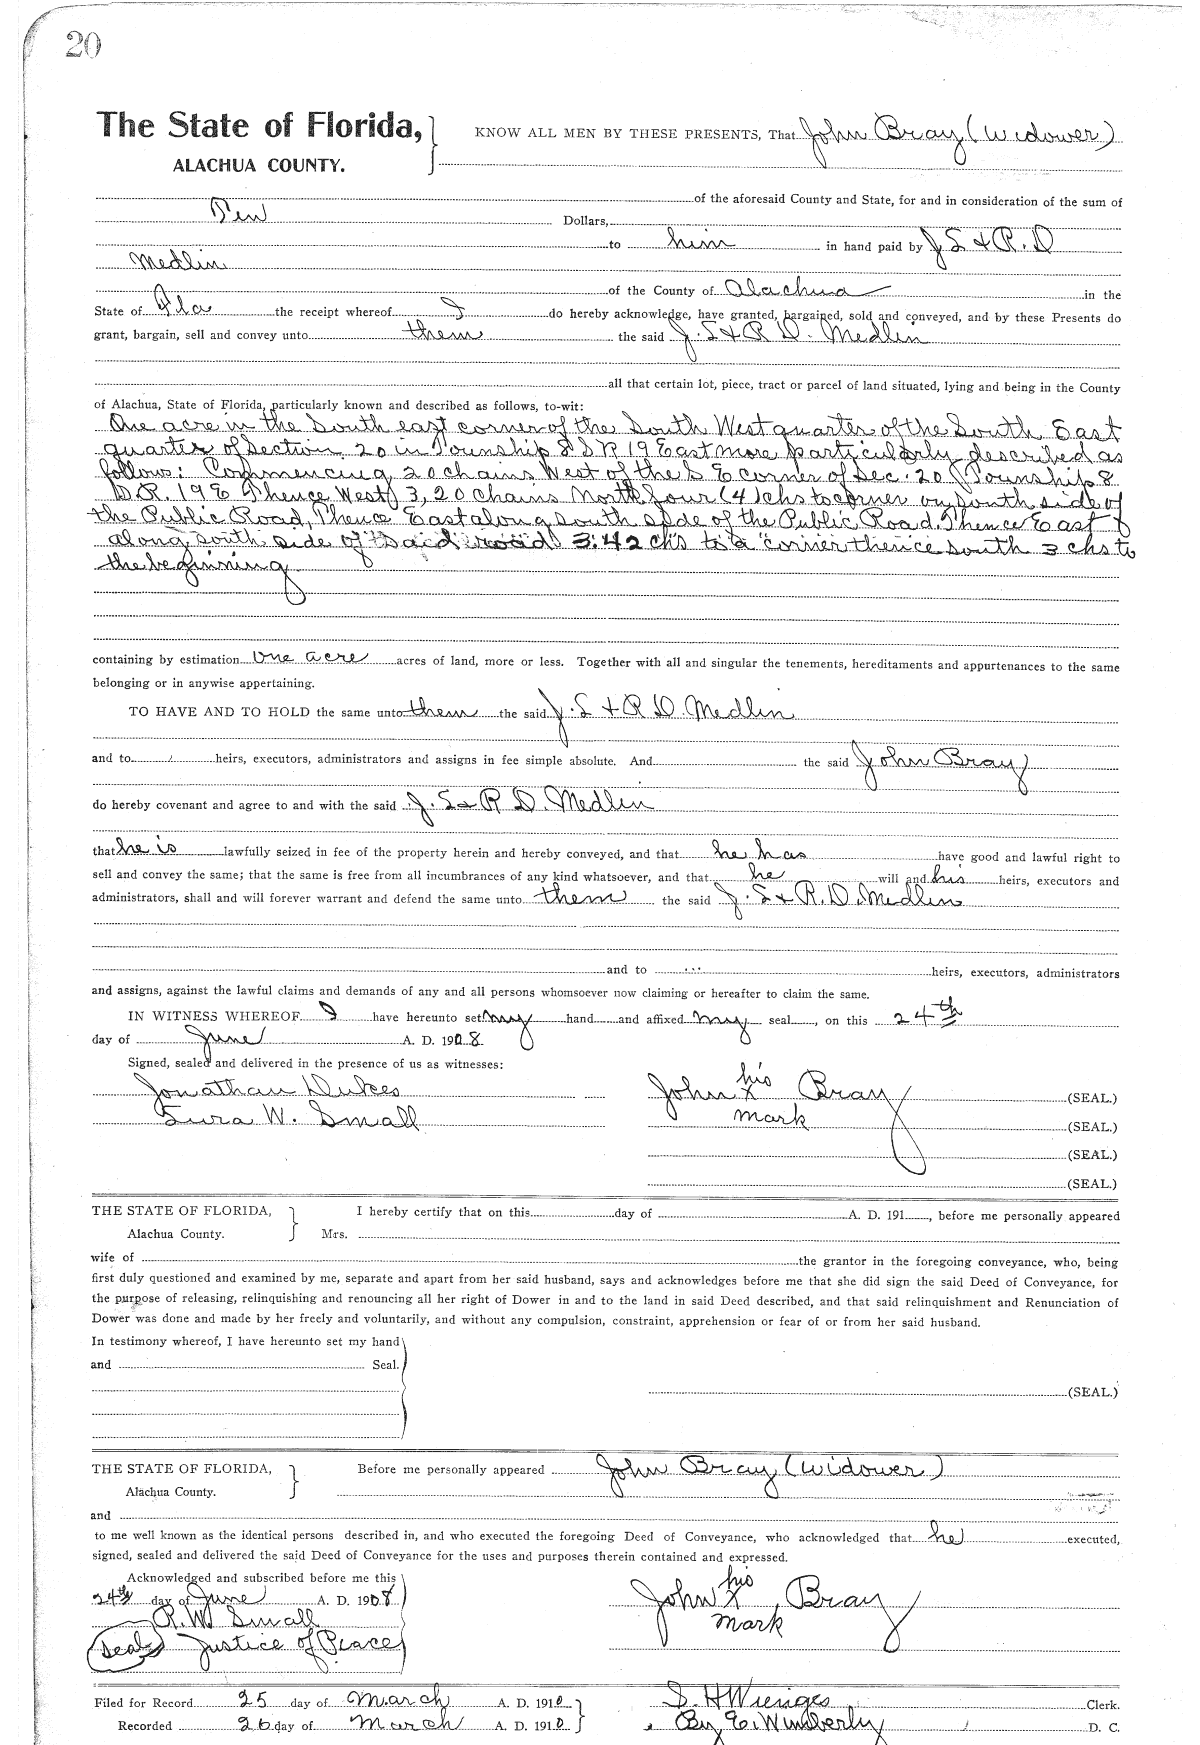 20
The State of Florida,
ALACHUA COUNTY.
KNOW ALL MEN BY THESE PRESENTS, That John Bray (Widower)
of the aforesaid County and State, for and in consideration of the sum of
Ten Dollars,
to him in hand paid by J S & R. D
Medlin
of the County of Alachua in the
State of Fla the receipt whereof I do hereby acknowledge, have granted, bargained, sold and conveyed, and by these Presents do
grant, bargain, sell and convey unto them the said J. S & R D. Medlin
all that certain lot, piece, tract or parcel of land situated, lying and being in the County
of Alachua, State of Florida, particularly known and described as follows, to-wit:
One acre in the South east corner of the South West quarter of the South East
quarter of Section 20 in Township 8 S R 19 East more particularly described as
follows: Commencing 20 chains West of the S E corner of Sec. 20 Township 8
S. R. 19 E Thence West 3,20 chains North four (4) chs to corner on south side of
the Public Road, Thence East along south side of the Public Road. Thence East
along south side of said road 3.42 chs to a corner thence south 3 chs to
the beginning
containing by estimation One acre acres of land, more or less. Together with all and singular the tenements, hereditaments and appurtenances to the same
belonging or in anywise appertaining.
TO HAVE AND TO HOLD the same unto them the said J. S & R D. Medlin
and to heirs, executors, administrators and assigns in fee simple absolute. And the said John Bray
do hereby covenant and agree to and with the said J. S & R D. Medlin
that he is lawfully seized in fee of the property herein and hereby conveyed, and that he has have good and lawful right to
sell and convey the same; that the same is free from all incumbrances of any kind whatsoever, and that he will and his heirs, executors and
administrators, shall and will forever warrant and defend the same unto them the said J. S & R. D. Medlin
and to heirs, executors, administrators
and assigns, against the lawful claims and demands of any and all persons whomsoever now claiming or hereafter to claim the same.
IN WITNESS WHEREOF I have hereunto set my hand and affixed my seal, on this 24th
day of June A. D. 1908.
Signed, sealed and delivered in the presence of us as witnesses:
Jonathan Dukes
W. Small
John his x mark Bray (SEAL.)
(SEAL.)
(SEAL.)
(SEAL.)
THE STATE OF FLORIDA,
Alachua County.
I hereby certify that on this day of A. D. 191 , before me personally appeared
Mrs.
wife of the grantor in the foregoing conveyance, who, being
first duly questioned and examined by me, separate and apart from her said husband, says and acknowledges before me that she did sign the said Deed of Conveyance, for
the purpose of releasing, relinquishing and renouncing all her right of Dower in and to the land in said Deed described, and that said relinquishment and Renunciation of
Dower was done and made by her freely and voluntarily, and without any compulsion, constraint, apprehension or fear of or from her said husband.
In testimony whereof, I have hereunto set my hand
and Seal.
(SEAL.)
THE STATE OF FLORIDA,
Alachua County.
Before me personally appeared John Bray (Widower)
and
to me well known as the identical persons described in, and who executed the foregoing Deed of Conveyance, who acknowledged that he executed,
signed, sealed and delivered the said Deed of Conveyance for the uses and purposes therein contained and expressed.
Acknowledged and subscribed before me this
24th day of June A. D. 1908
R. W. Small
(Seal) Justice of Peace
John his x mark Bray
Filed for Record 25 day of March A. D. 1910
Recorded 26 day of March A. D. 1910
S. H Wienges Clerk.
By E. Wimberly D. C.